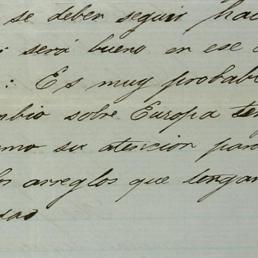 se deben seguir hac
será bueno en ese
: Es muy probabl
mbio sobre Europa ten
omo su atencion para
los arreglos que tengan
sas